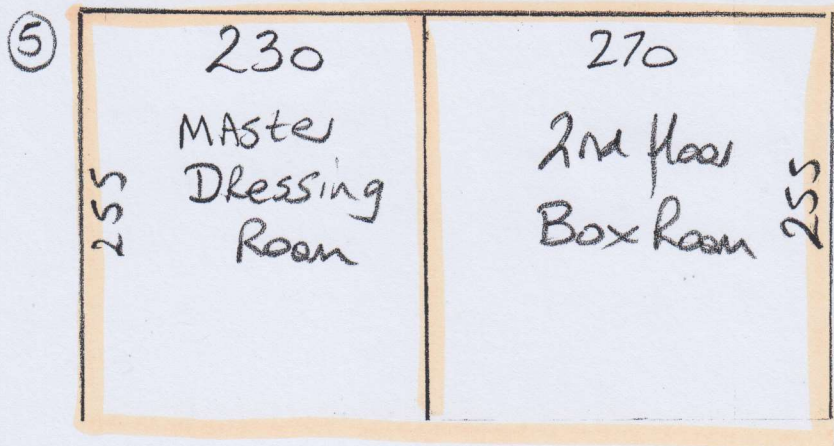 5
230
MASter
DRessing
Room
255
270
2nd floor
Box Room
255